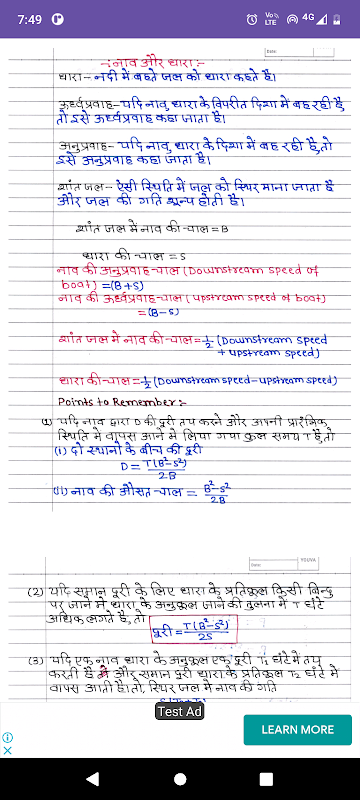 7:49
Vo) LTE
4G
Date:
-: नाव और धारा :-
धारा - नदी में बहते जल को धारा कहते हैं।
ऊर्ध्वप्रवाह - यदि नाव, धारा के विपरीत दिशा में बह रही है,
तो इसे ऊर्ध्वप्रवाह कहा जाता है।
अनुप्रवाह - यदि नाव, धारा के दिशा में बह रही है, तो
इसे अनुप्रवाह कहा जाता है।
शांत जल - ऐसी स्थिति में जल को स्थिर माना जाता है
और जल की गति शून्य होती है।
शांत जल में नाव की चाल = B
धारा की चाल = S
नाव की अनुप्रवाह-चाल (Downstream speed of
boat) = (B+S)
नाव की ऊर्ध्वप्रवाह-चाल (upstream speed of boat)
= (B-S)
शांत जल में नाव की-चाल = 1/2 (Downstream speed
+ upstream speed)
धारा की-चाल = 1/2 (Downstream speed - upstream speed)
Points to Remember :-
(1) यदि नाव द्वारा D की दूरी तय करने और अपनी प्रारंभिक
स्थिति में वापस आने में लिया गया कुल समय T है, तो
(i) दो स्थानों के बीच की दूरी
D = T(B²-S²)/2B
(ii) नाव की औसत-चाल = B²-S²/2B
YOUVA
Date:
(2) यदि समान दूरी के लिए धारा के प्रतिकूल किसी बिन्दु
पर जाने में धारा के अनुकूल जाने की तुलना में T घंटे
अधिक लगते हैं, तो
दूरी = T(B²-S²)/2S
(3) यदि एक नाव धारा के अनुकूल एक दूरी T₁ घंटे में तय
करती है और समान दूरी धारा के प्रतिकूल T₂ घंटे में
वापस आती है। तो, स्थिर जल में नाव की गति
Test Ad
LEARN MORE